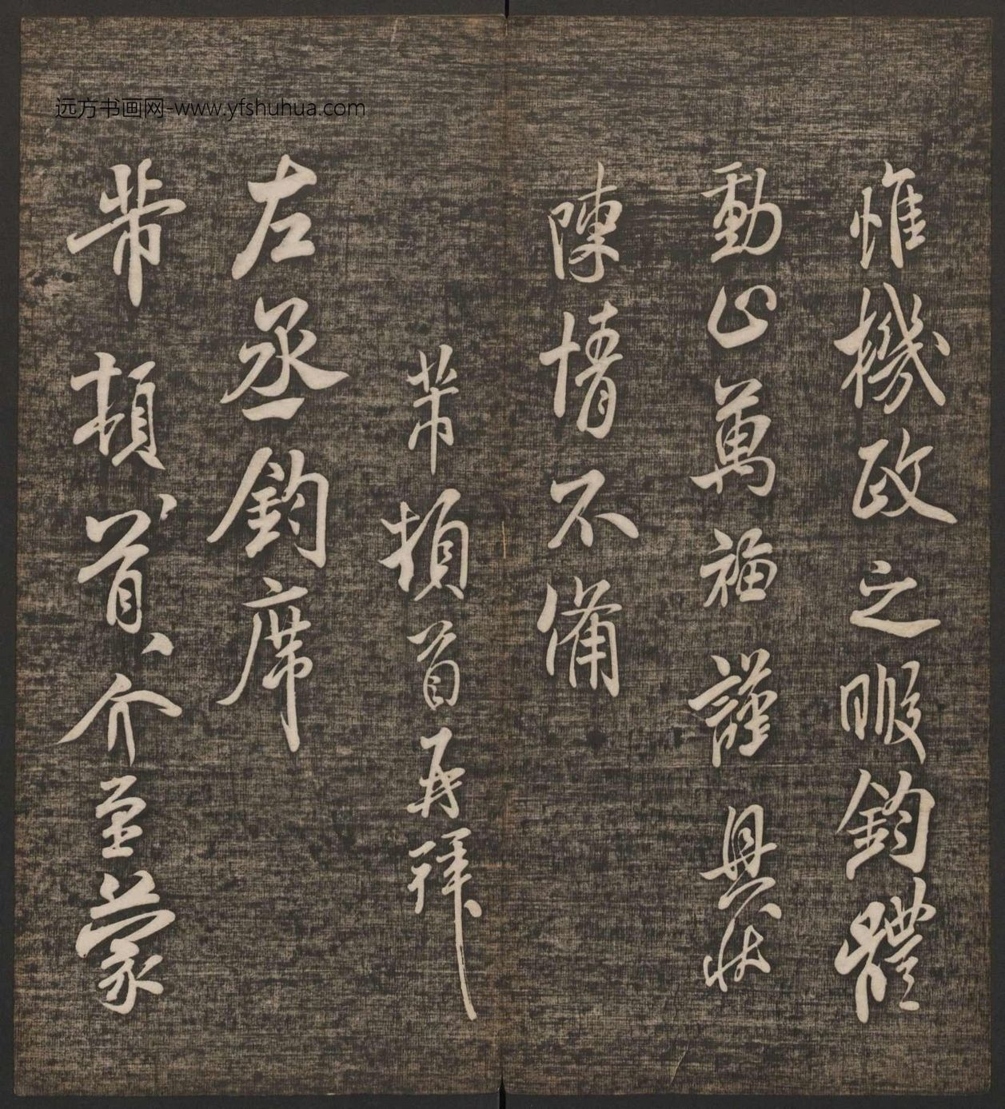 远方书画网-www.yfshuhua.com
惟機政之暇鈞體
動止萬福謹具狀
陳情不備
芾頓首再拜
左丞鈞席
芾頓首頓首介至蒙